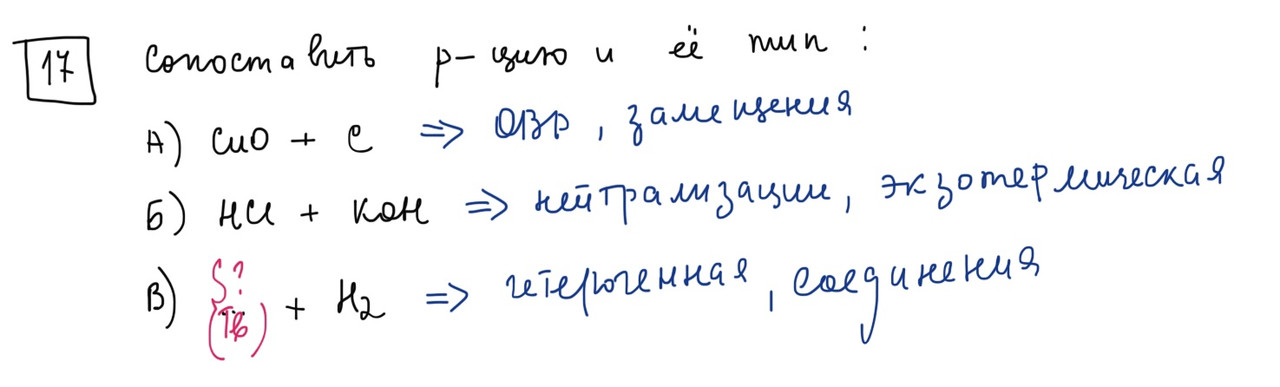 17 Сопоставить р-цию и её тип :
А) CuO + C => ОВР, замещения
Б) HCl + KOH => нейтрализации, экзотермическая
В) S? (тв) + H2 => гетерогенная, соединения